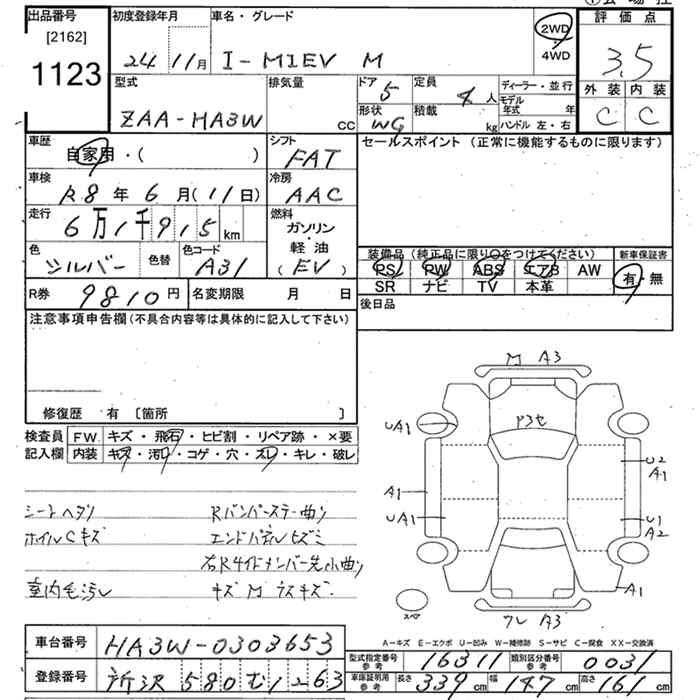 出品番号 初度登録年月 車名・グレード 2WD 評価点
[2162] 4WD
1123 24 11月 I-MIEV M 3.5
型式 排気量 ドア 5 定員 4人 ディーラー・並行 外装 内装
モデル年式 年
ZAA-HA3W CC 形状 WG 積載 kg ハンドル 左・右 C C
車歴 自家用・( ) シフト FAT セールスポイント (正常に機能するものに限ります)
車検 R8年6月(11日) 冷房 AAC
走行 6万1千915km 燃料 ガソリン
軽油
(EV)
色 シルバー 色替 色コード A31
装備品(純正品に限り○をつけてください) 新車保証書
PS PW ABS エアB AW 有・無
SR ナビ TV 本革
R券 9810円 名変期限 月 日 後日品
注意事項申告欄(不具合内容等は具体的に記入して下さい)
修復歴 有 [箇所 ]
検査員 FW キズ・飛石・ヒビ割・リペア跡・×要
記入欄 内装 キズ・汚れ・コゲ・穴・スレ・キレ・破レ
M A3
P3セ
UA1
U2
A1
A1
UA1
U1
A2
A1
スペア
A3
シートヘタリ Rバンパーステー曲り
ホイルCキズ エンドパネルヒズミ
右Rサイドメンバー先小曲り
室内毛汚レ
A-キズ E-エクボ U-凹み W-補修跡 S-サビ C-腐食 XX-交換済
車台番号 HA3W-0303653
型式指定番号 参考 16311 類別区分番号 参考 0031
登録番号 所沢 580 む 1263
車庫証明用 参考 長さ 339cm 幅 147cm 高さ 161cm